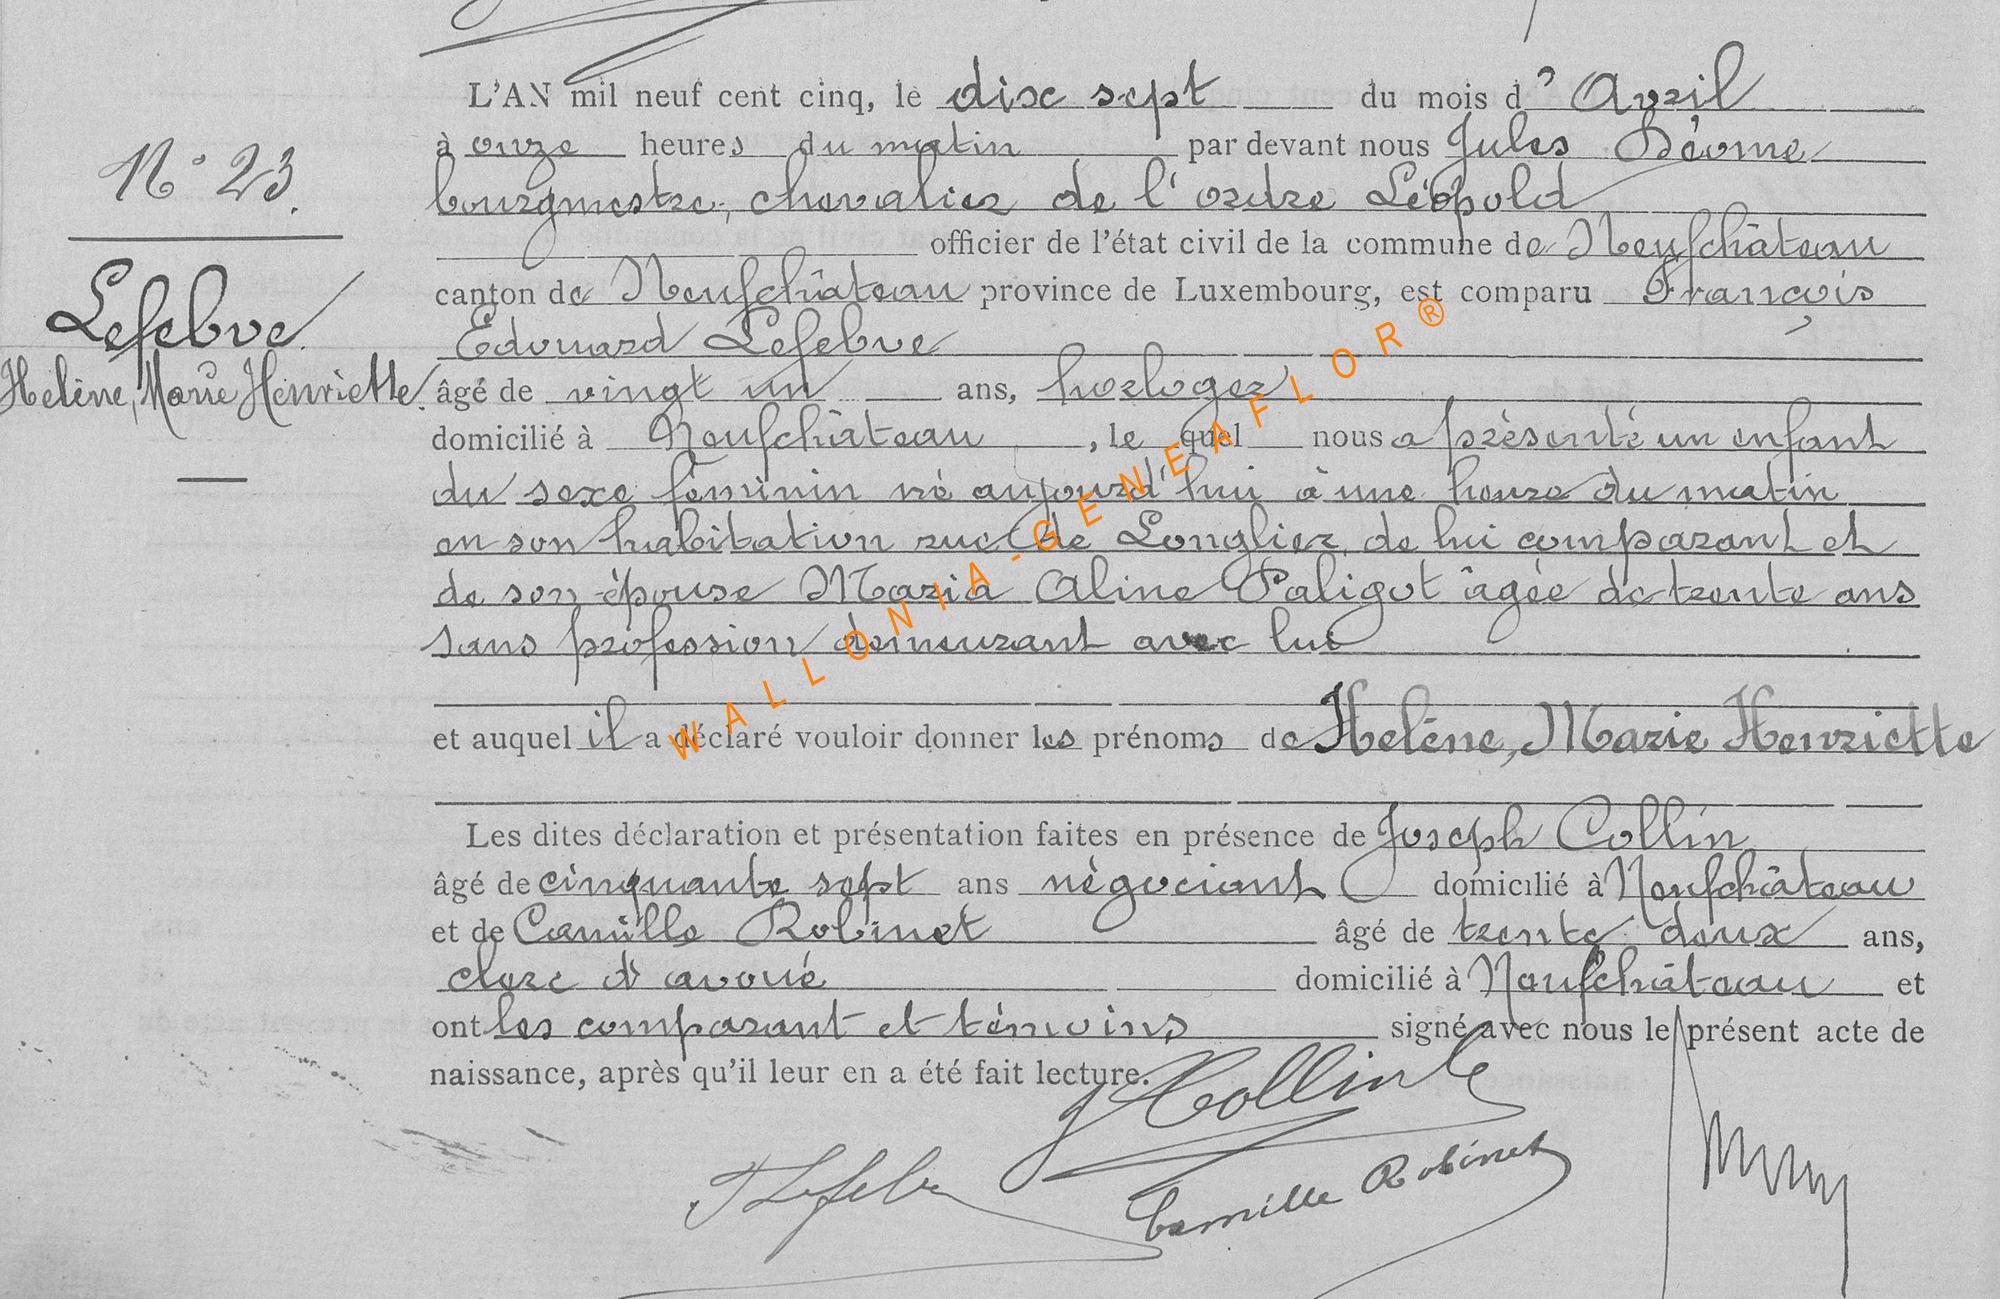 N° 23.
Lefebvre
Helène, Marie Henriette.
L'AN mil neuf cent cinq, le disc sept du mois d' Avril
à onze heures du matin par devant nous Jules Déome
bourgmestre, chevalier de l'ordre Léopold
officier de l'état civil de la commune de Neufchâteau
canton de Neufchâteau province de Luxembourg, est comparu François
Edouard Lefebvre
âgé de vingt un ans, horloger
domicilié à Neufchâteau, le quel nous a présenté un enfant
du sexe féminin né aujourd'hui à une heure du matin
en son habitation rue de Longlier, de lui comparant et
de son épouse Maria Aline Paligot âgée de trente ans
sans profession demeurant avec lui
et auquel il a déclaré vouloir donner les prénoms de Helène, Marie Henriette
Les dites déclaration et présentation faites en présence de Joseph Collin
âgé de cinquante sept ans négociant domicilié à Neufchâteau
et de Camille Robinet âgé de trente deux ans,
clerc d'avoué domicilié à Neufchâteau et
ont les comparant et témoins signé avec nous le présent acte de
naissance, après qu'il leur en a été fait lecture.
J Collin
F Lefebvre
Camille Robinet
WALLONIA-GENEAFLOR®